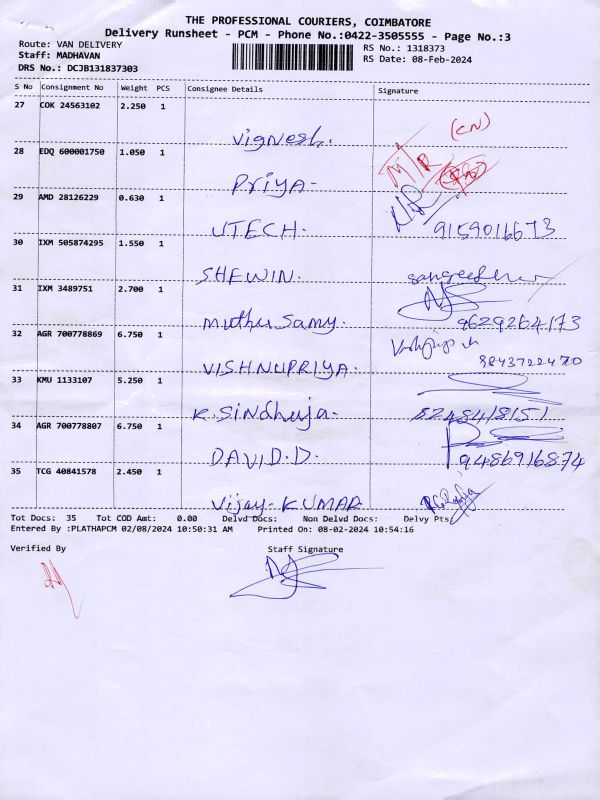 THE PROFESSIONAL COURIERS, COIMBATORE
Delivery Runsheet - PCM - Phone No.:0422-3505555 - Page No.:3
Route: VAN DELIVERY
RS No.: 1318373
Staff: MADHAVAN
RS Date: 08-Feb-2024
DRS No.: DCJB131837303
S No Consignment No Weight PCS Consignee Details Signature
27 COK 24563102 2.250 1
Vignesh. (CN)
28 EDQ 600001750 1.050 1
Priya-
29 AMD 28126229 0.630 1
UTECH. 9159016673
30 IXM 505874295 1.550 1
SHEWIN.
31 IXM 3489751 2.700 1
Muthu Samy. 9629264173
32 AGR 700778869 6.750 1
VISHNUPRIYA. 9843722470
33 KMU 1133107 5.250 1
K. Sindhuja. 8248418151
34 AGR 700778807 6.750 1
DAVID.D. 9486916874
35 TCG 40841578 2.450 1
Vijay-KUMAR
Tot Docs: 35 Tot COD Amt: 0.00 Delvd Docs: Non Delvd Docs: Delvy Pts:
Entered By :PLATHAPCM 02/08/2024 10:50:31 AM Printed On: 08-02-2024 10:54:16
Verified By Staff Signature